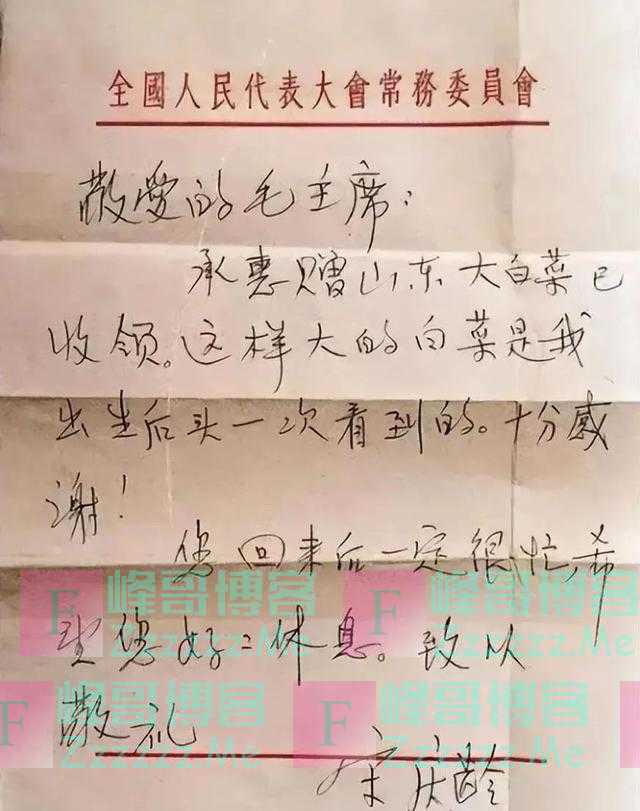 全國人民代表大會常務委員會
敬爱的毛主席：
承惠赠山东大白菜已
收领。这样大的白菜是我
出生后头一次看到的。十分感
谢！
您回来后一定很忙，希
望您好二休息。致以
敬礼
宋庆龄
F 峰哥博客
Zzzzzz.Me
F 峰哥博客
Zzzzzz.Me
F 峰哥博客
Zzzzzz.Me
F 峰哥博客
Zzzzzz.Me